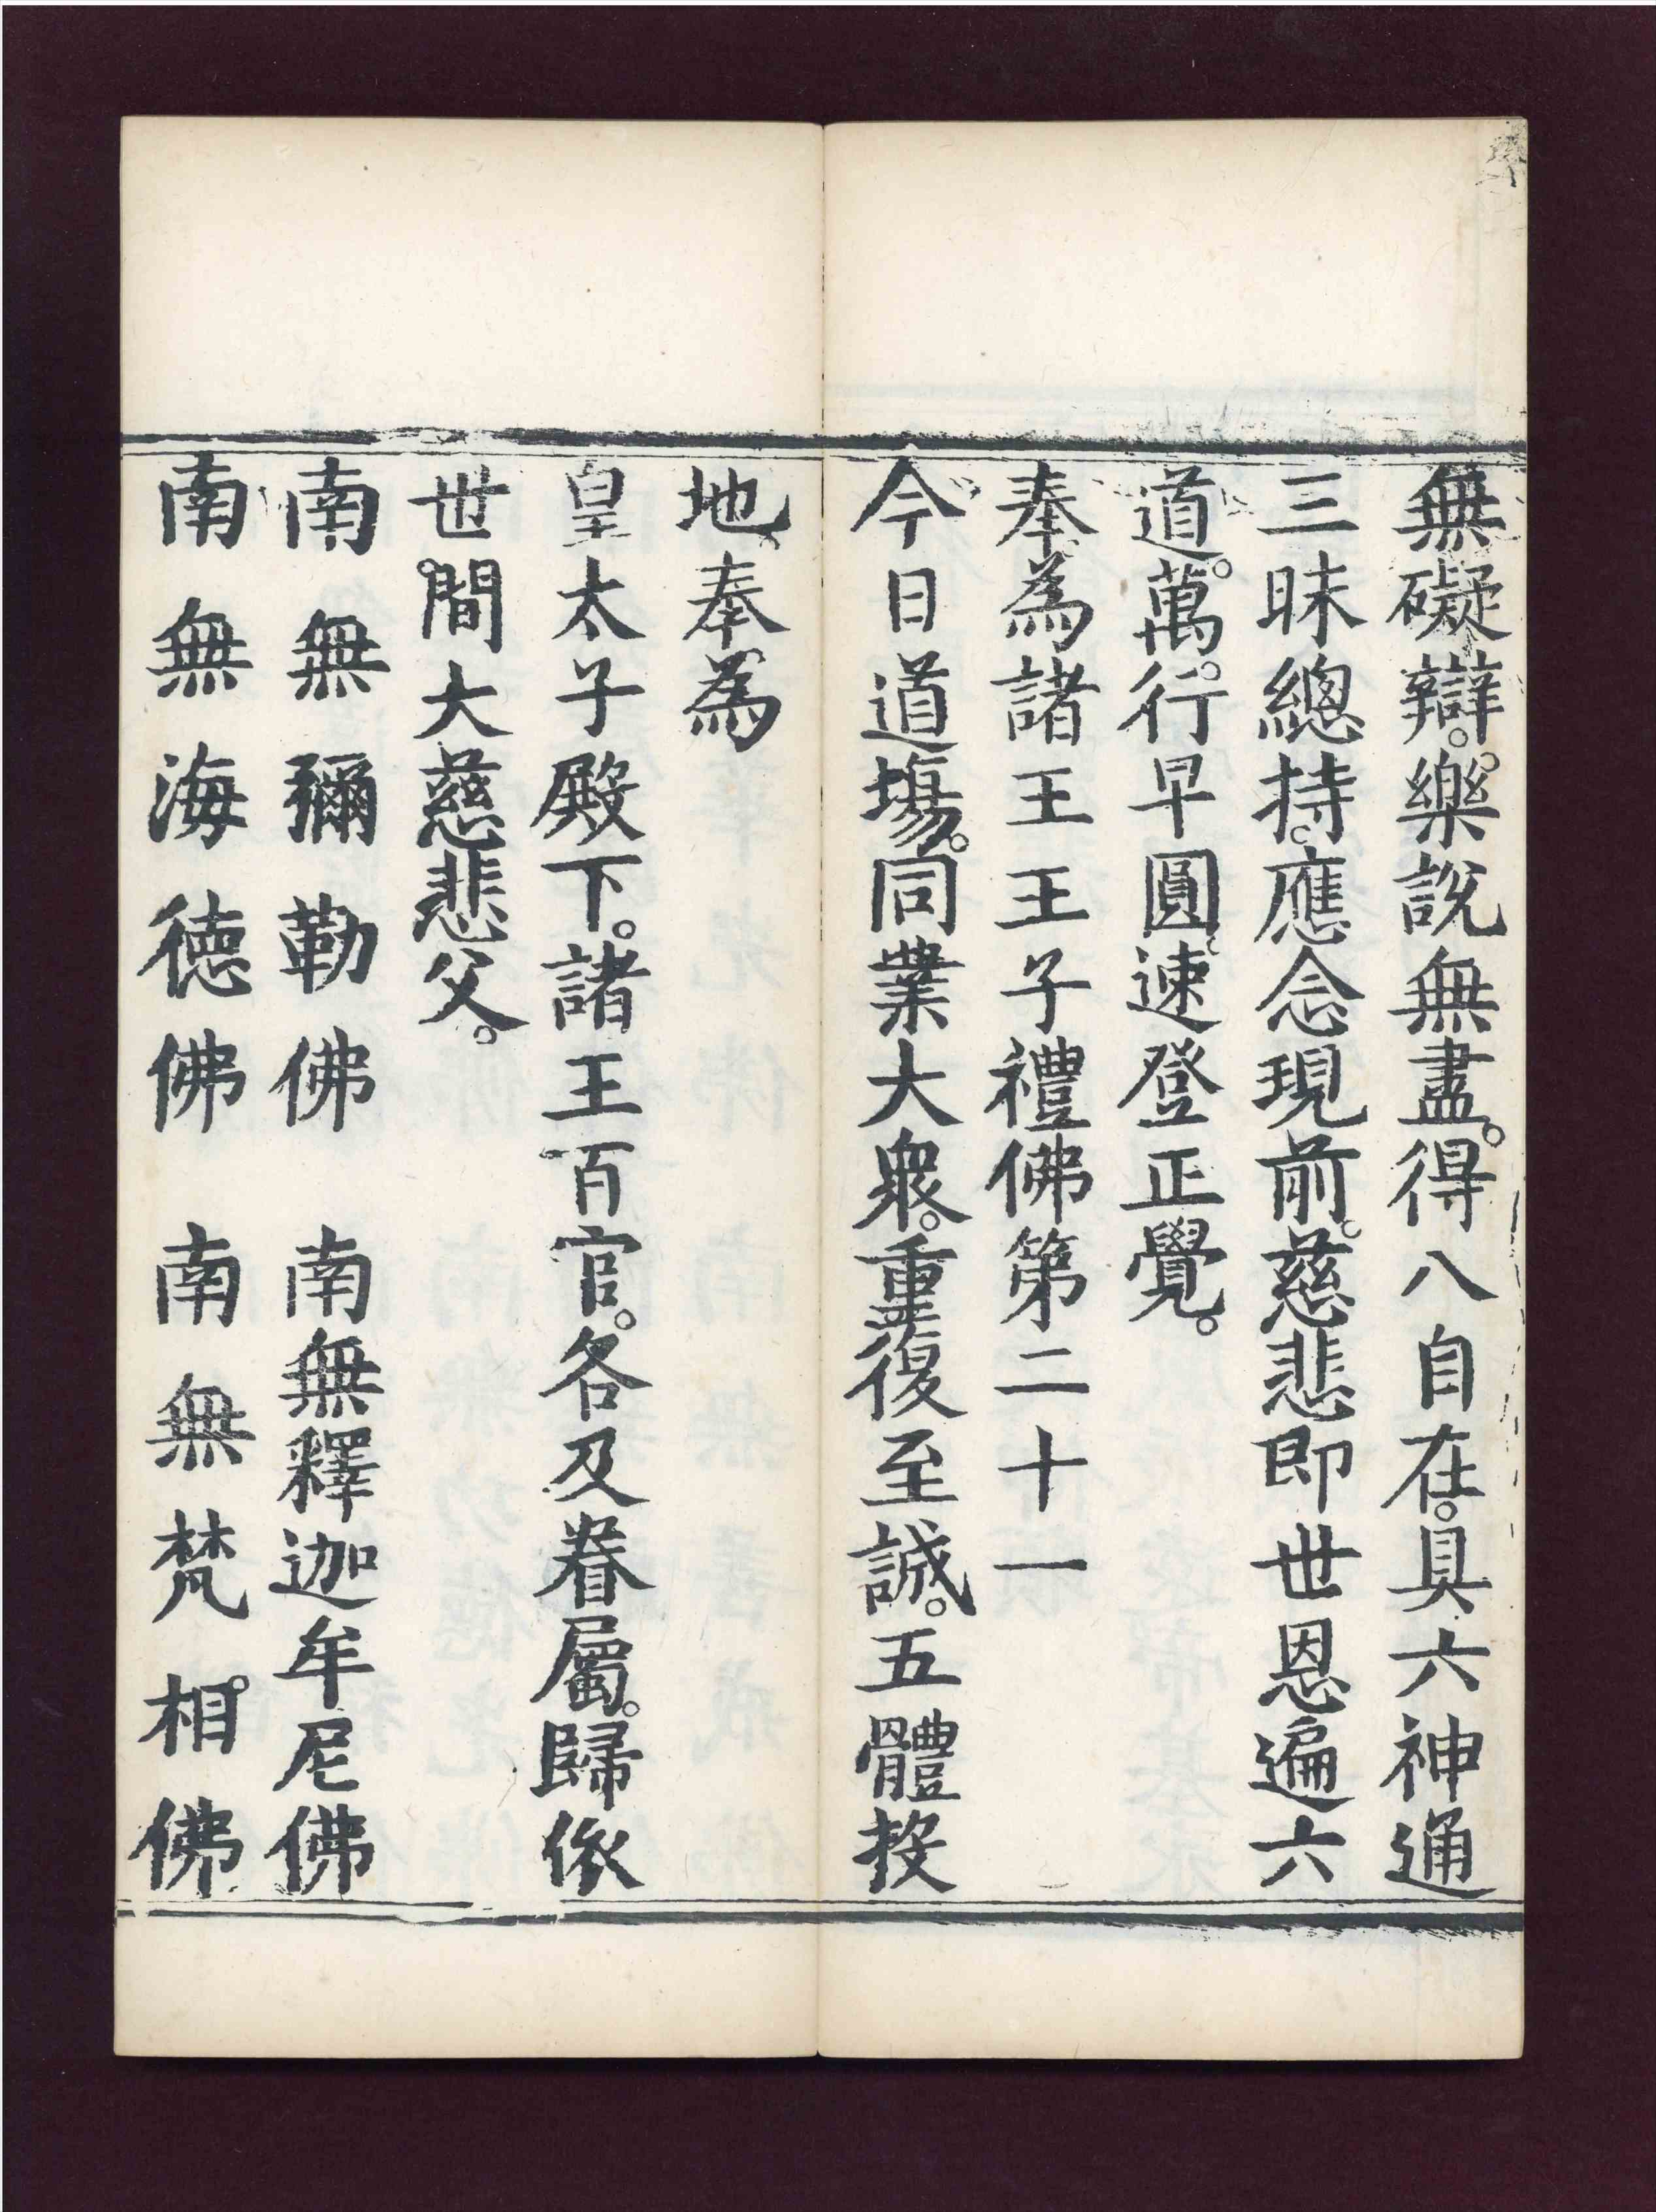 無礙辯。樂說無盡。得八自在。具六神通
三昧總持。應念現前。慈悲即世恩遍六
道。萬行早圓。速登正覺。
奉為諸王王子禮佛第二十一
今日道塲。同業大衆。重復至誠。五體投
地。奉為
皇太子殿下。諸王百官。各及眷屬。歸依
世間大慈悲父。
南無彌勒佛　南無釋迦牟尼佛
南無海德佛　南無梵相佛